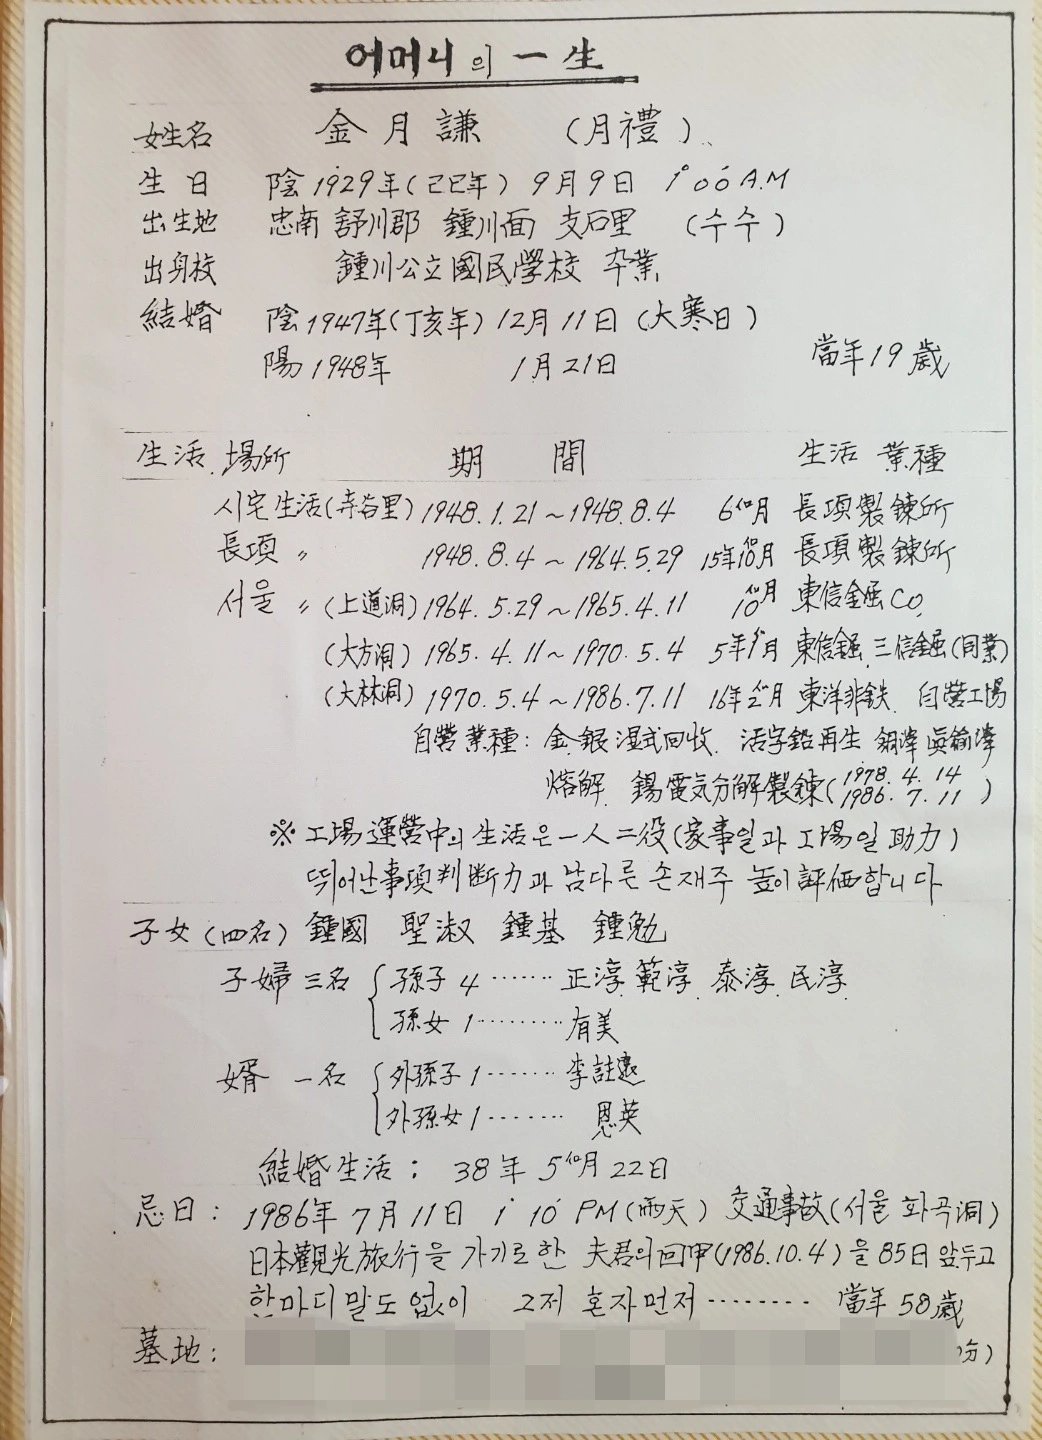 어머니의 一生
姓名 金月謙 (月禮)
生日 陰1929年(己巳年) 9月9日 1:00 A.M
出生地 忠南 舒川郡 鍾川面 支石里 (수수)
出身校 鍾川公立國民學校 卒業
結婚 陰1947年(丁亥年) 12月 11日 (大寒日)
陽1948年 1月 21日 當年19歲
生活 場所 期間 生活 業種
시宅生活(寺谷里) 1948.1.21~1948.8.4 6個月 長項製鍊所
長項 〃 1948.8.4~1964.5.29 15年10個月 長項製鍊所
서울 〃 (上道洞) 1964.5.29~1965.4.11 10個月 東信金屬 CO.
(大方洞) 1965.4.11~1970.5.4 5年1個月 東信金屬 三信金屬(同業)
(大林洞) 1970.5.4~1986.7.11 16年2個月 東洋非鉄 自營工場
自營業種: 金.銀 湿式回收. 活字鉛再生 銅滓 眞鍮滓
熔解 錫電気分解製鍊(1978.4.14
1986.7.11)
※ 工場運營中의 生活은 一人二役(家事일과 工場일 助力)
뛰어난 事項判断力과 남다른 손재주 높이 評価합니다
子女(四名) 鍾國 聖淑 鍾基 鍾勉
子婦 三名 孫子 4 ‥‥‥ 正淳. 範淳. 泰淳. 民淳.
孫女 1 ‥‥‥ 有美
婿 一名 外孫子 1 ‥‥‥ 李
外孫女 1 ‥‥‥ 恩英
結婚生活 : 38年 5個月 22日
忌日 : 1986年 7月 11日 1:10 PM(雨天) 交通事故(서울 화곡洞)
日本觀光旅行을 가기로한 夫君의 回甲(1986.10.4)을 85日 앞두고
한마디 말도 없이 그저 혼자 먼저 ‥‥‥‥ 當年 58歲
墓地 : 分)